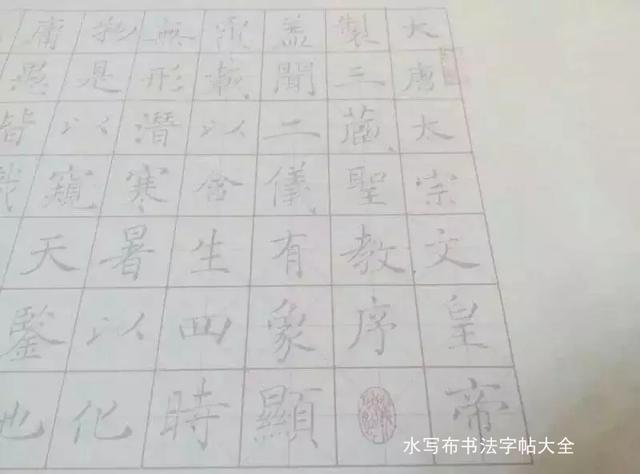 大唐太宗文皇帝
製三藏聖教序
蓋聞二儀有象顯
覆載以含生四時
無形潛寒暑以化
物是以窺天鑒地
庸愚皆
水写布书法字帖大全